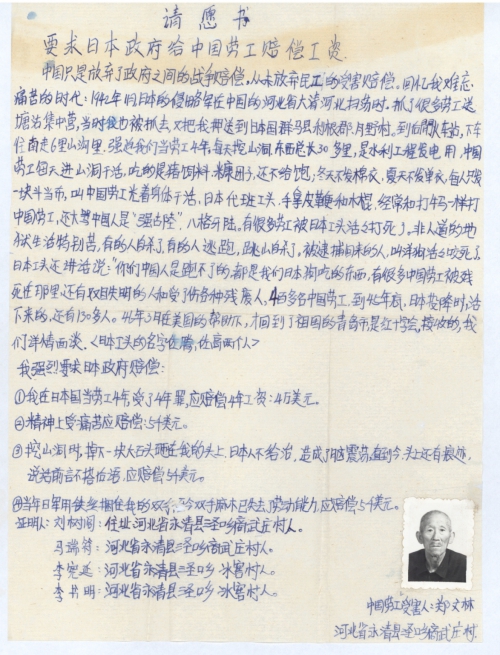 请愿书
要求日本政府给中国劳工赔偿工资
中国只是放弃了政府之间的战争赔偿，从未放弃民工的受害赔偿。回忆我难忘
痛苦的时代：1942年旧日本的侵略军在中国的河北省大清河北扫荡时，抓了很多劳工送
塘沽集中营，当时我也被抓去，又把我押送到日本国群马县利根郡月野村。到后闲火车站，下车
往南走6里山沟里，强迫我们当劳工4年，每天挖山洞，东西总长30多里，是水利工程发电用，中国
劳工每天进山洞干活，吃的是猪饲料，米糠团子，还不给饱，冬天不发棉衣，夏天不发单衣，每人只发
一块斗当布，叫中国劳工光着身体干活，日本代班工头，手拿皮鞭和木棍，经常和打牛马一样打
中国劳工，还大骂中国人是“强古陆”，八格牙陆，有很多劳工被日本工头活活打死了，非人道的地
狱生活特别苦，有的人自杀了，有的人逃跑，跳山自杀了，被逮捕回来的人，叫洋狗活活咬死了
日本工头还讲话说：“你们中国人是跑不了的，都是我们日本狗吃的东西，有很多中国劳工被残
死在那里，还有双目失明的人和受了伤各种残废人，4百多名中国劳工，到45年底，日本投降时，活
下来的，还有130多人。46年3月在美国的帮助下，才回到了祖国的青岛市是红十字会，接收的，我
们详情面谈。〈日本工头的名字 高两个人〉
我强烈要求日本政府赔偿：
①我在日本国当劳工4年，受了4年罪，应赔偿4年工资：4万美元。
②精神上受痛苦应赔偿：5千美元。
③挖山洞时，掉下一块大石头砸在我的头上，日本人不给治，造成了脑震荡，直到今，头上还有痕迹，
说话前言不搭后语，应赔偿5千美元。
④当年日军用铁丝捆住我的双手，至今双手麻木已失去，劳动能力，应赔偿5千美元。
证明人：刘树阁：住址河北省永清县三圣口乡南武庄村人。
马瑞符：河北省永清县三圣口乡南武庄村人。
李宪廷：河北省永清县三圣口乡冰窖村人。
李书明：河北省永清县三圣口乡冰窖村人。
中国劳工受害人：郑文林
河北省永清县三圣口乡南武庄村